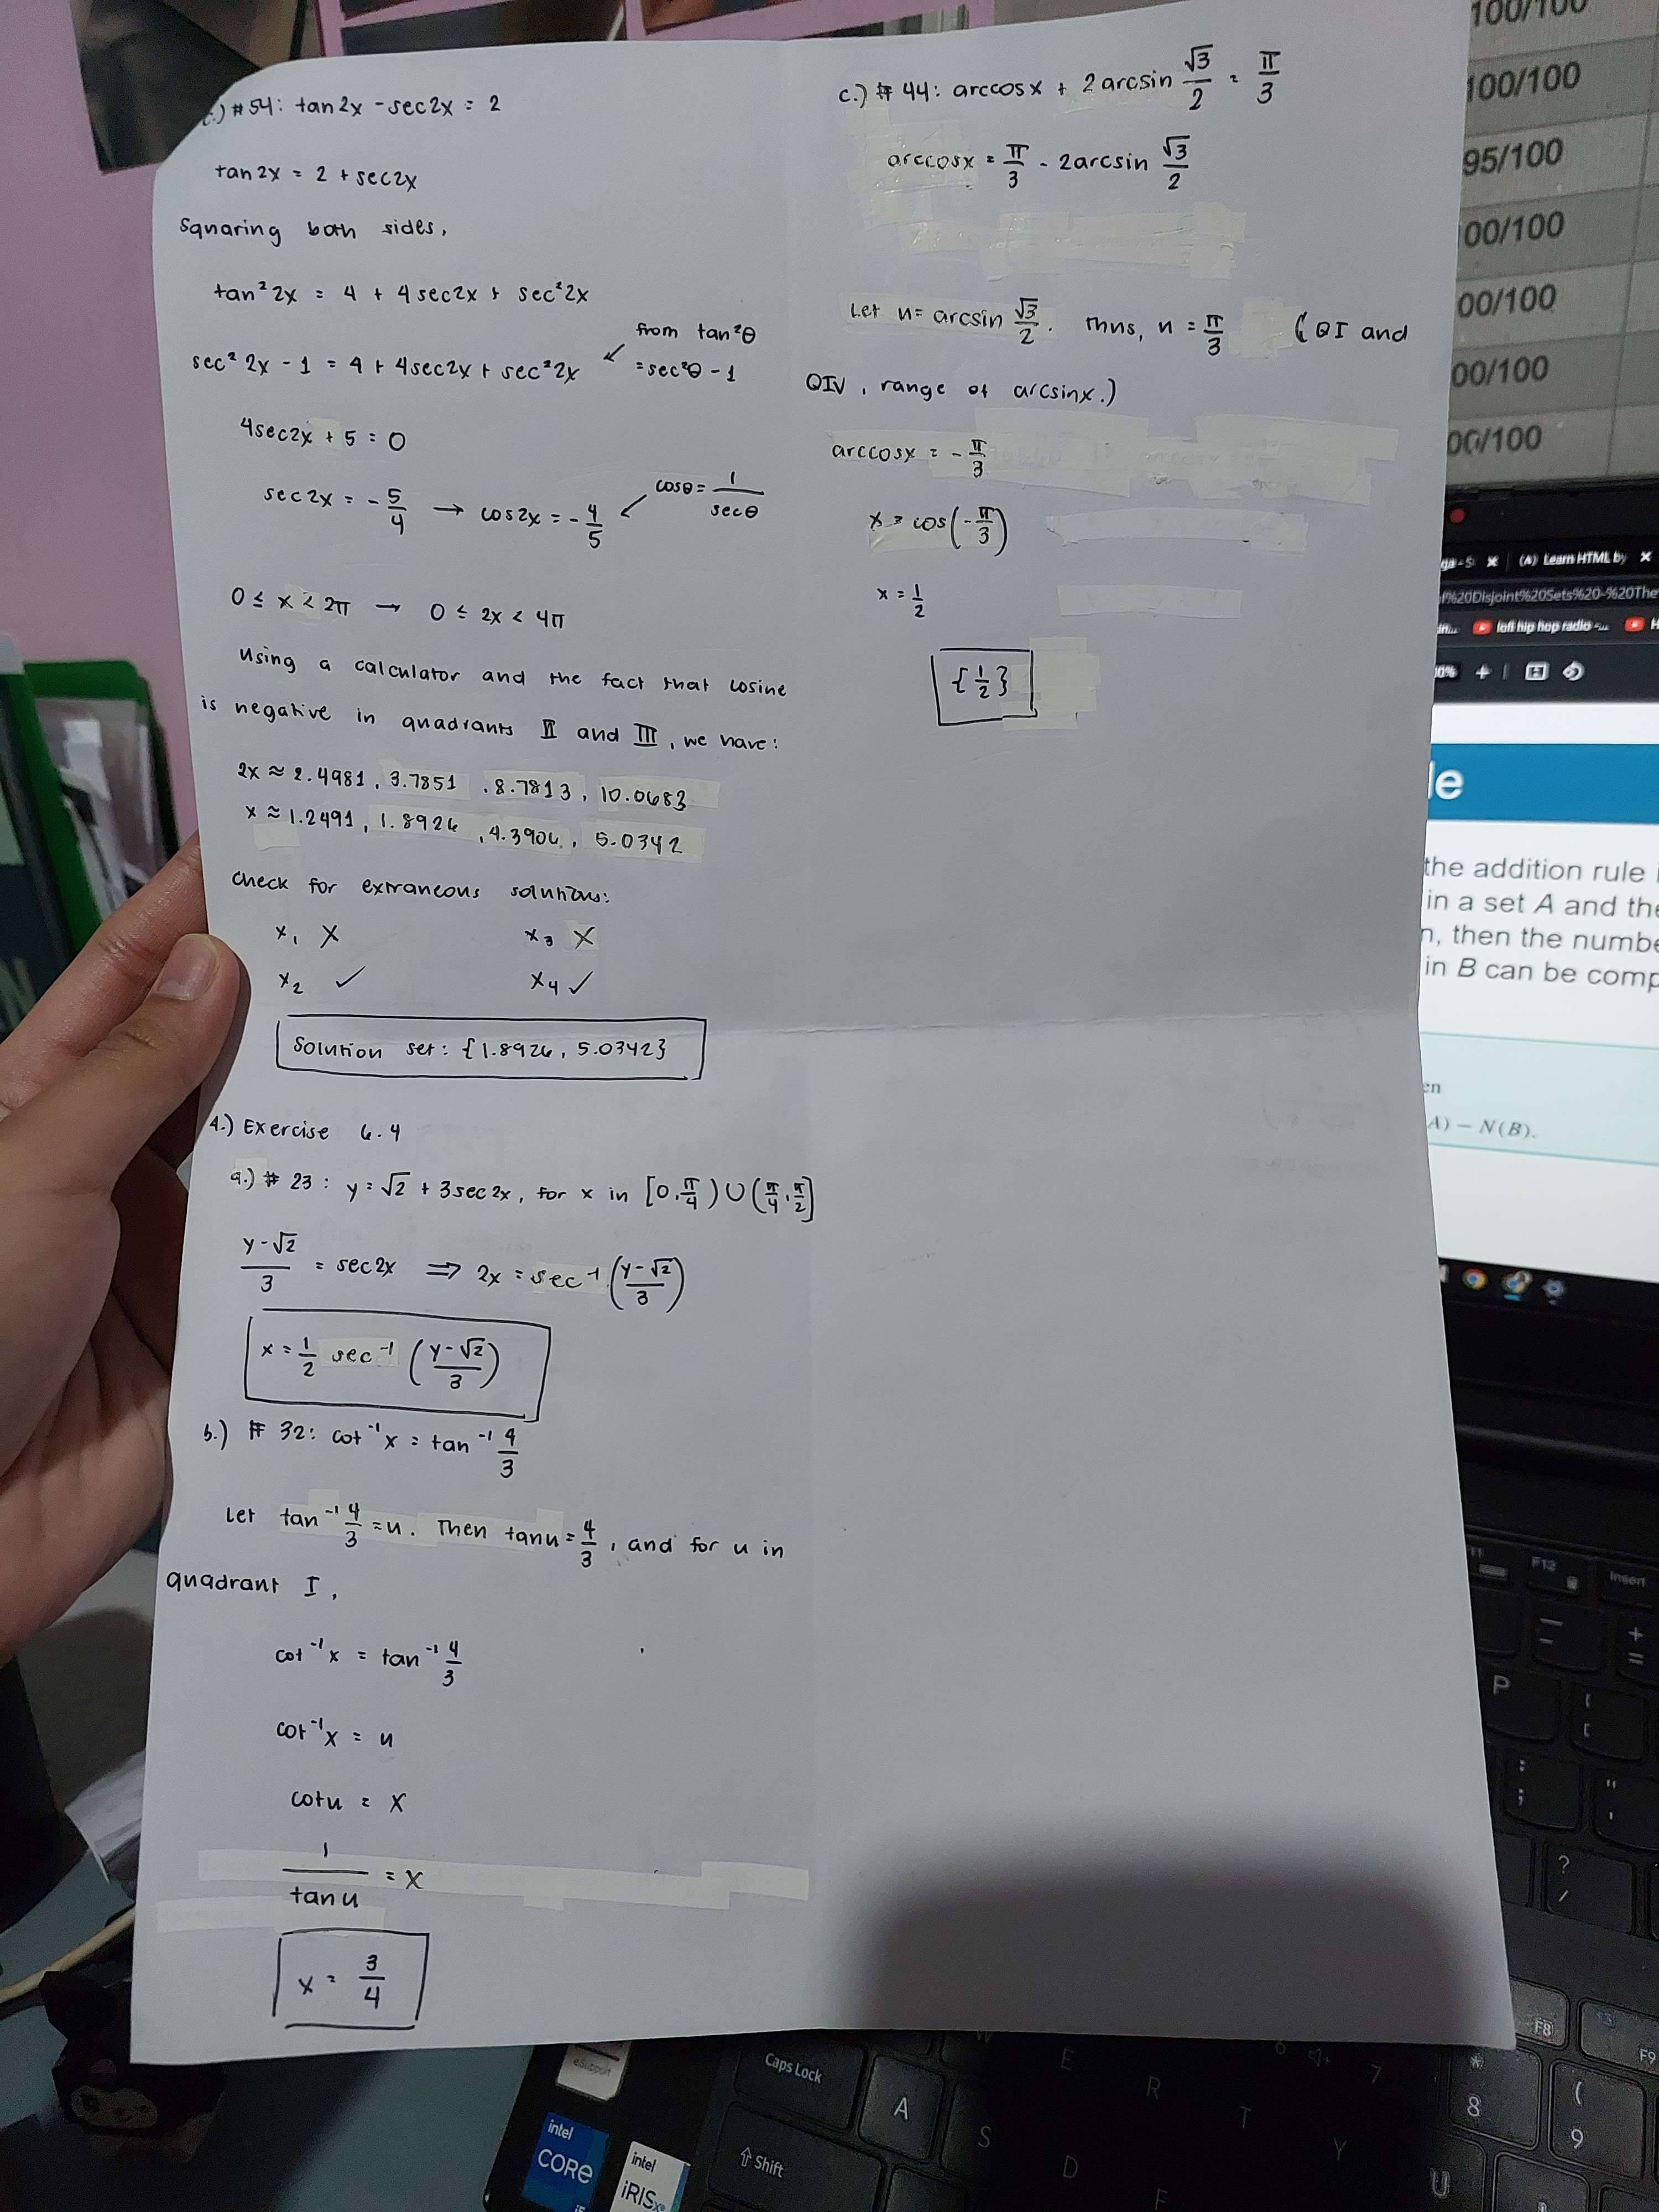 c.) #54: tan2x - sec2x = 2
tan2x = 2 + sec2x
Squaring both sides,
tan²2x = 4 + 4sec2x + sec²2x
sec²2x - 1 = 4 + 4sec2x + sec²2x
from tan²θ
= sec²θ - 1
4sec2x + 5 = 0
sec2x = - 5/4 → cos2x = - 4/5
cosθ = 1/secθ
0 ≤ x < 2π → 0 ≤ 2x < 4π
Using a calculator and the fact that cosine
is negative in quadrants II and III, we have:
2x ≈ 2.4981, 3.7851, 8.7813, 10.0683
x ≈ 1.2491, 1.8926, 4.3906, 5.0342
Check for extraneous solutions:
x₁ X x₃ X
x₂ ✓ x₄ ✓
Solution set: {1.8926, 5.0342}
4.) Exercise 6.4
a.) # 23: y = √2 + 3sec2x, for x in [0, π/4) ∪ (π/4, π/2]
(y-√2)/3 = sec2x ⇒ 2x = sec⁻¹ ((y-√2)/3)
x = 1/2 sec⁻¹ ((y-√2)/3)
b.) # 32: cot⁻¹x = tan⁻¹ 4/3
Let tan⁻¹ 4/3 = u. Then tanu = 4/3, and for u in
quadrant I,
cot⁻¹x = tan⁻¹ 4/3
cot⁻¹x = u
cotu = x
1/tanu = x
x = 3/4
c.) # 44: arccosx + 2arcsin √3/2 = π/3
arccosx = π/3 - 2arcsin √3/2
Let u = arcsin √3/2. Thus, u = π/3 (QI and
QIV, range of arcsinx.)
arccosx = - π/3
x = cos(-π/3)
x = 1/2
{1/2}
100/100
100/100
95/100
00/100
00/100
00/100
00/100
Learn HTML by
f%20Disjoint%20Sets%20-%20The
lofi hip hop radio -...
le
the addition rule
in a set A and the
n, then the numbe
in B can be comp
en
A) – N(B).
F12
Insert
P
F8
F9
Caps Lock
Shift
A
S
D
F
E
R
T
Y
U
7
8
9
intel
CORE
intel
iRISxe